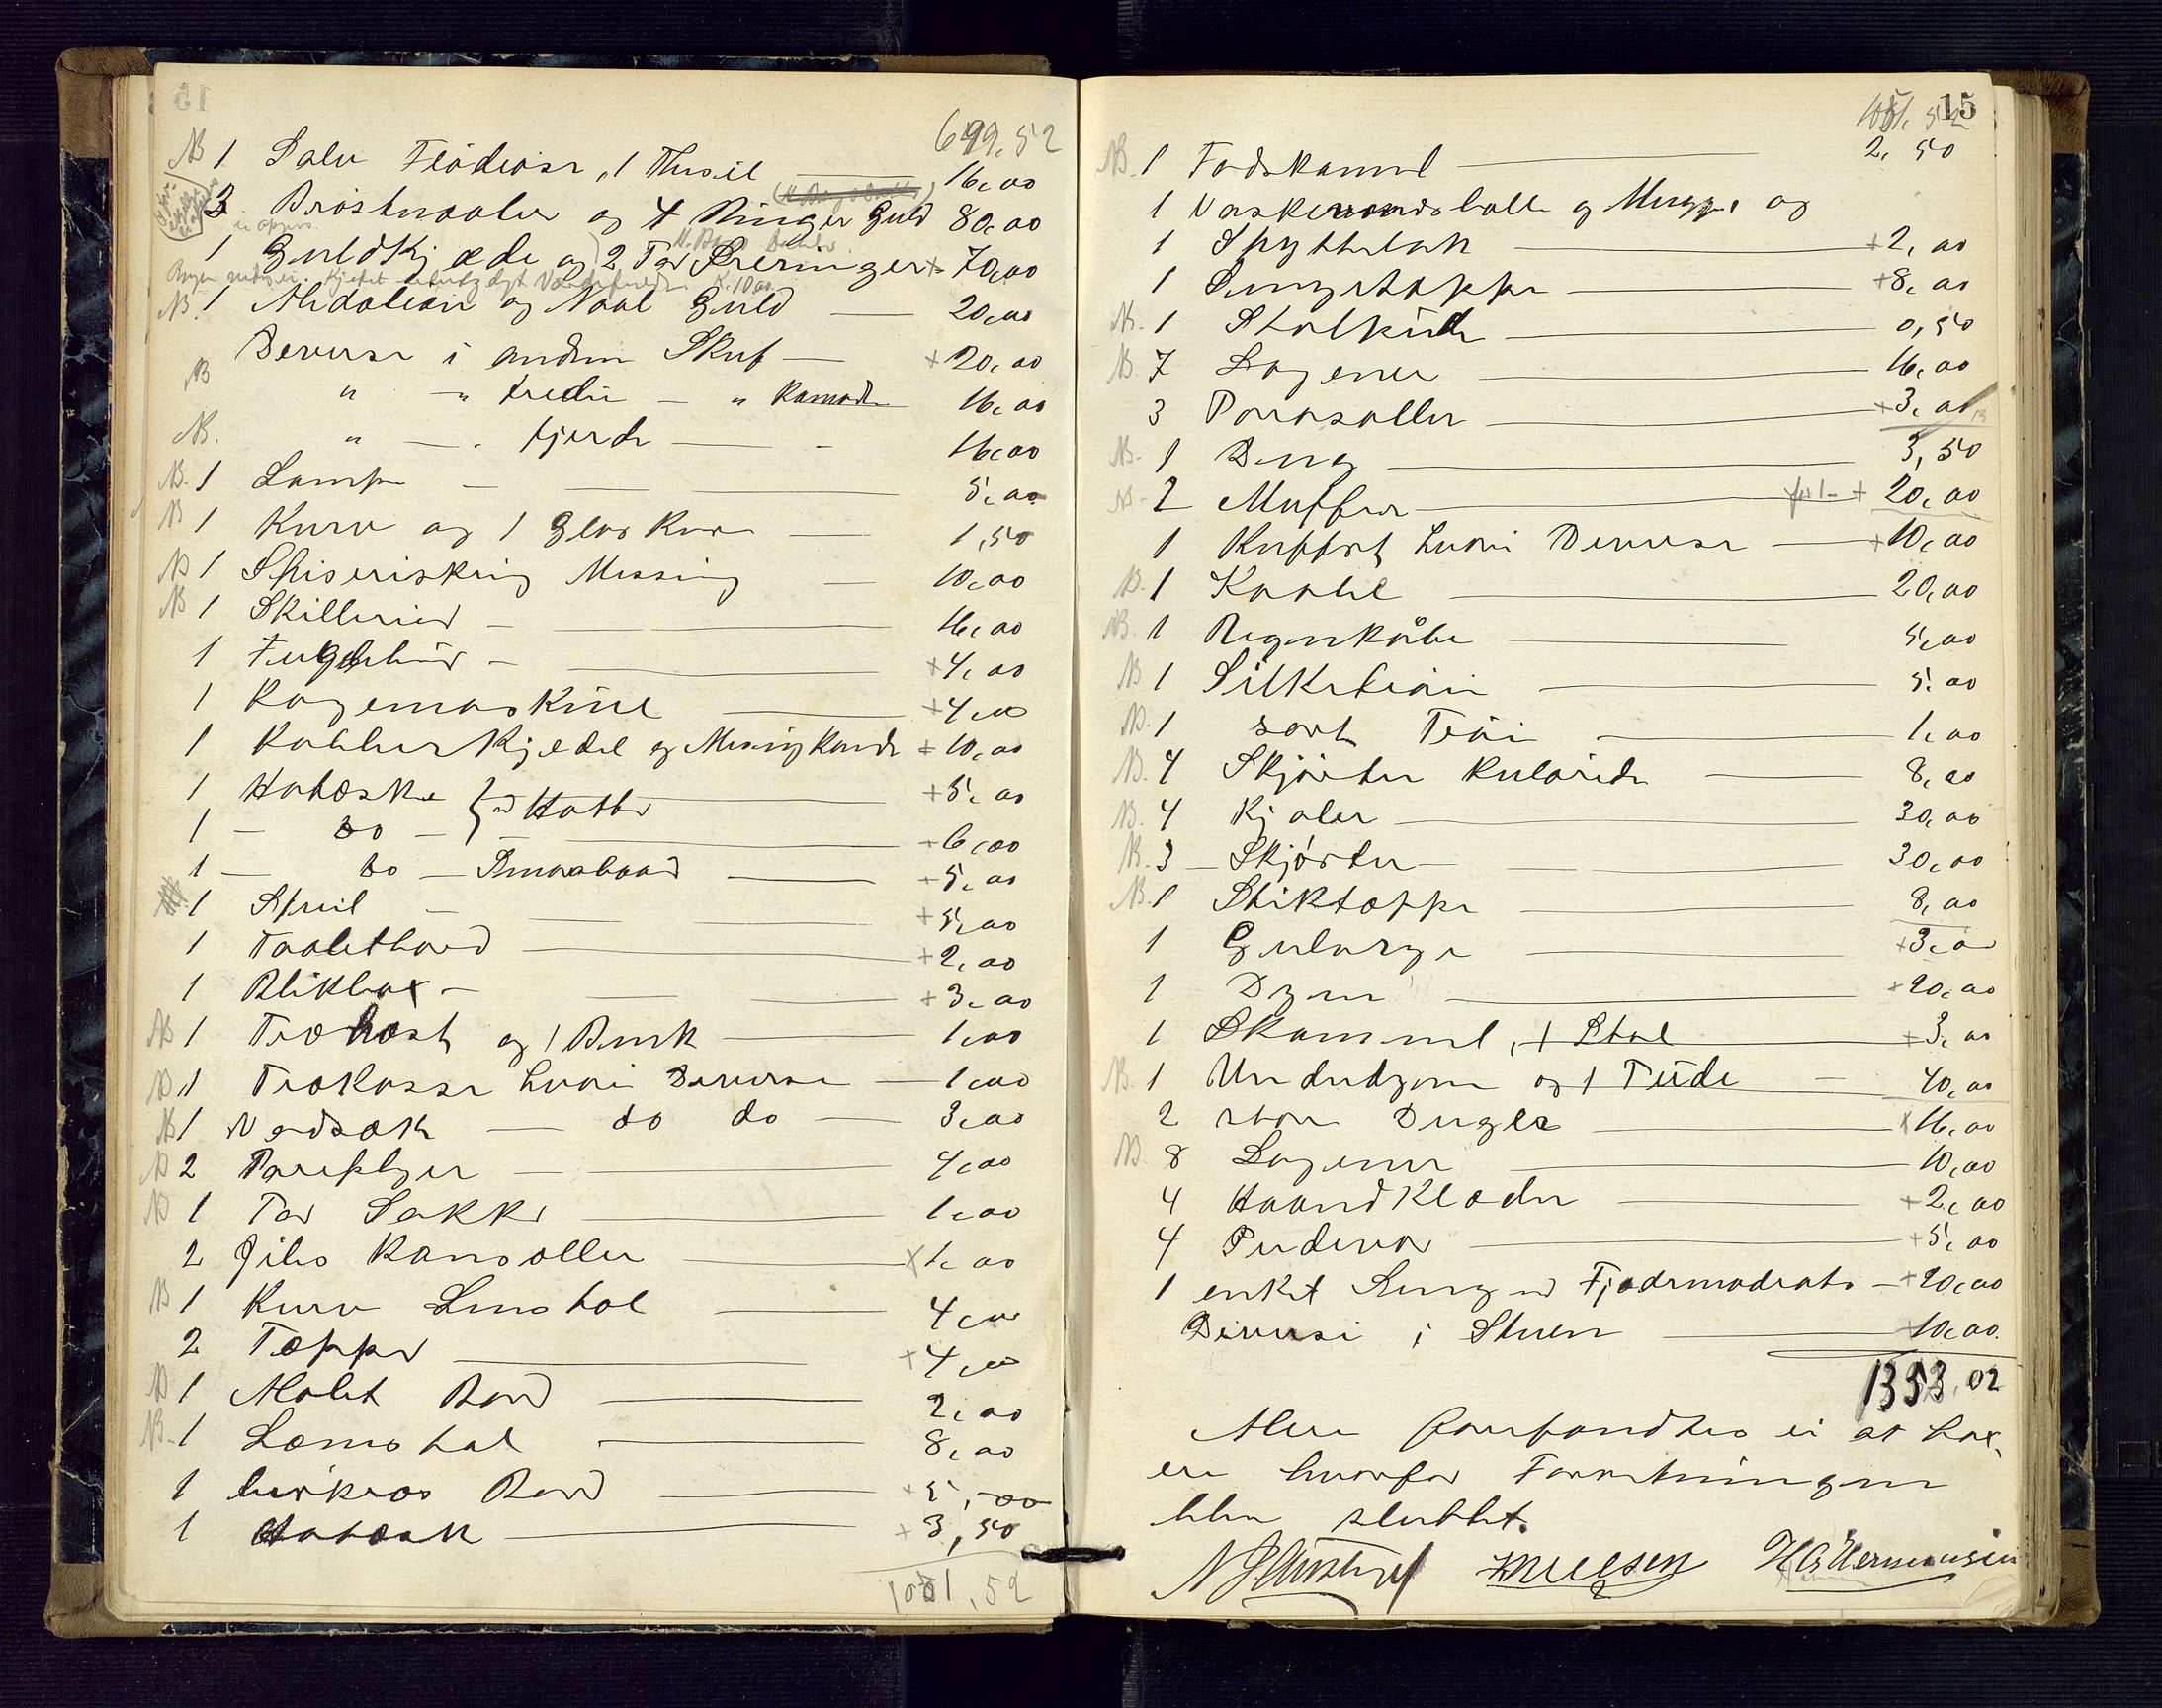 699,52
NB 1 Sølv Flødeose, 1 Theseil — 16,00
3 Brøstnaaler og 4 Ringe Guld 80,00
1 Guldkjæde og 2 Par Øreringe + 70,00
NB. 1 Medalion og Naal Guld — 20,00
Diverse i anden Skuf — + 20,00
NB " — " tredie — " Komode 16,00
NB. " — " fjerde — 16,00
NB. 1 Lampe — 5,00
NB 1 Kurv og 1 Glas Kurv — 1,50
NB 1 Messing — 10,00
NB 1 Skilleri — 16,00
1 Fuglebur — + 4,00
1 Kagemaskine + 4,00
1 Kobberkjedel og Messing Kande + 10,00
1 Hatæske } m Hatte + 5,00
1 — do — + 6,00
1 — do — Smaabaand — + 5,00
1 Speil — + 5,00
1 Toaletbord — + 2,00
1 Blikbox — + 3,00
NB 1 Træhest og 1 Bænk — 1,00
NB 1 Trækasse hvori Diverse — 1,00
NB 1 Vadsæk — do do — 3,00
NB 2 Paraplyer — 4,00
NB 1 Par Sokker — 1,00
2 Gibs Konsoller — x 1,00
NB 1 Kurv Lænestol — 4,00
2 Tæpper — + 4,00
NB 1 Malet Bord — 2,00
NB. 1 Lænestol — 8,00
1 birkees Bord — + 5,00
1 Hatæsk — + 3,50
1051,52
15
1051,52
NB. 1 Fodskammel — 2,50
1 Vaskevandsbolle og Mugge og
1 Spyttebak — + 2,00
1 Sengetæppe — + 8,00
NB. 1 — 0,50
NB. 7 Lagener — 16,00
3 Parasoller — + 3,00
NB. 1 — 3,50
NB. 2 Muffer — + 20,00
1 Kuffert hvori Diverse — + 10,00
NB. 1 Kaabe — 20,00
NB. 1 Regnkåbe — 5,00
NB 1 Silketrøie — 5,00
NB. 1 sort Trøie — 1,00
NB. 4 Skjørter kulørede — 8,00
NB. 4 Kjoler — 30,00
NB. 3 — Skjørter — 30,00
NB. 1 Stiktæppe — 8,00
1 — + 3,00
1 Dyne — + 20,00
1 Skammel, 1 Stol — + 3,00
NB. 1 Underdyne og 1 — 40,00
2 store Duger — x 16,00
NB. 8 Lagener — 10,00
4 Haandklæder — + 2,00
4 Pudevar — + 5,00
1 enkelt Seng m Fjædrmadrats — + 20,00
Diverse i Stuen — + 10,00
1353,02
Mere forefandtes ei at tax-
ere hvorfor Forretningen
blev sluttet.
Nielsen H G Hermansen